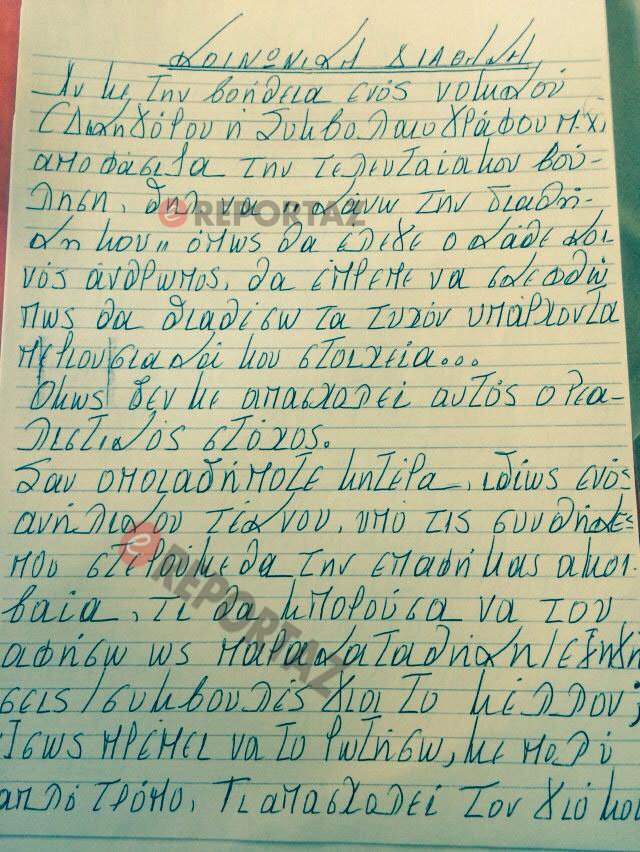 ΚΟΙΝΩΝΙΚΗ ΔΙΑΘΗΚΗ
Αν με την βοήθεια ενός νομικού
(Δικηγόρου ή Συμβολαιογράφου π.χ.)
αποφάσιζα την τελευταία μου βού-
ληση, δηλ να "κάνω την διαθή-
κη μου" όπως θα έλεγε ο κάθε κοι-
νός άνθρωπος, θα έπρεπε να σκεφθώ
πως θα διαθέσω τα τυχόν υπάρχοντα
περιουσιακά μου στοιχεία...
Όμως δεν με απασχολεί αυτός ο ρεα-
λιστικός στόχος.
Σαν οποιαδήποτε μητέρα, ιδίως ενός
ανήλικου τέκνου, υπό τις συνθήκες
που στερούμεθα την επαφή μας αμοι-
βαία, τι θα μπορούσα να του
αφήσω ως παρακαταθήκη/εξηγή
σεις/συμβουλές για το μέλλον;
Ίσως πρέπει να το ρωτήσω, με πολύ
απλό τρόπο, Τι απασχολεί τον γιό μου
e REPORTAZ
e REPORTAZ